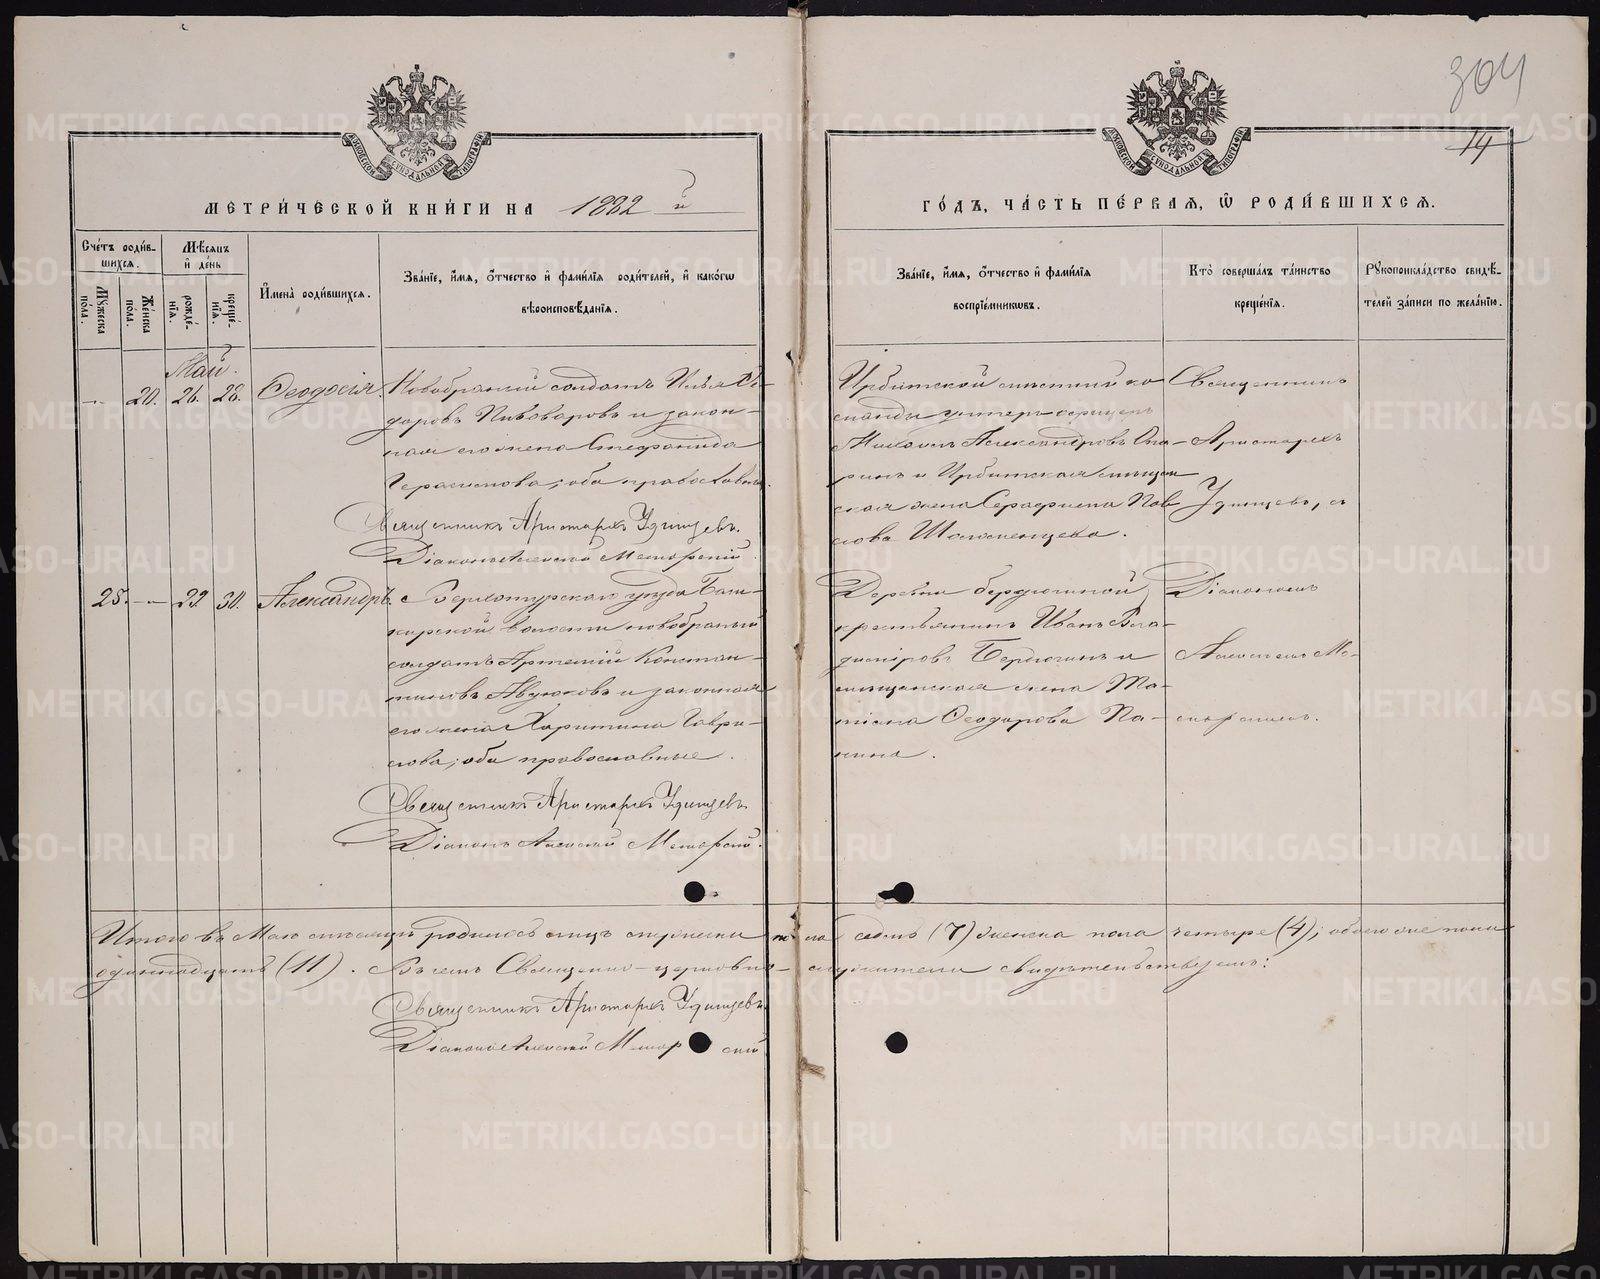 304
14
МОСКОВСКОЙ СѴНОДАЛЬНОЙ ТИПОГРАФІИ
МОСКОВСКОЙ СѴНОДАЛЬНОЙ ТИПОГРАФІИ
МЕТРИ́ЧЕСКОЙ КНИ́ГИ НА 1882 й
ГО́ДЪ, ЧА́СТЬ ПЕ́РВАЯ, Ѿ РОДИ́ВШИХСЯ.
Сче́тъ роди́в-
шихся.
Му́жеска по́ла.
Же́нска по́ла.
Мѣ́сяцъ
и҆ де́нь
рожде́-
нїя.
креще́-
нїя.
И҆мена̀ роди́вшихся.
Зва́нїе, и҆́мя, о҆́тчество и҆ фами́лїя роди́телей, и҆ како́гѡ
вѣроисповѣ́данїя.
Зва́нїе, и҆́мя, о҆́тчество и҆ фами́лїя
воспрїе́мникѡвъ.
Кто̀ соверша́лъ та́инство
креще́нїя.
Рꙋкоприкла́дство свидѣ́-
телей за́писи по жела́нїю.
Май.
— 20. 26. 28. Ѳеодосія.
Новобраный солдатъ Илья Си-
доровъ Пивоваровъ и закон-
ная его жена Стефанида
Герасимова; оба православные.
Священникъ Аристархъ Удинцевъ.
Діаконъ Алексій Меморскій.
Ирбитской мѣстной ко
манды унтеръ-офицеръ
Николай Александровъ Опа-
ринъ и Ирбитская мѣщан
ская жена Серафима Пав
лова Шаламенцева.
Священникъ
Аристархъ
Удинцевъ, съ
25. — 29. 30. Александръ
Верхотурскаго уѣзда Баш-
карской волости новобраный
солдатъ Артемій Констан-
тиновъ Авдюковъ и законная
его жена Харитина Гаври-
лова; оба православные.
Священникъ Аристархъ Удинцевъ.
Діаконъ Алексій Меморскій.
Деревни Бердюгиной
крестьянинъ Иванъ Вла-
диміровъ Бердюгинъ и
мѣщанская жена Та-
тіана Ѳеодорова Па-
нина.
Діакономъ
Алексіемъ Ме-
морскимъ.
Итого въ Маѣ мѣсяцѣ родилось лицъ мужеска пола седмь (7) женска пола четыре (4); обоего же пола
одиннадцать (11). Въ семъ Священно-церковно-служители свидѣтельствуемъ:
Священникъ Аристархъ Удинцевъ.
Діаконъ Алексій Меморскій